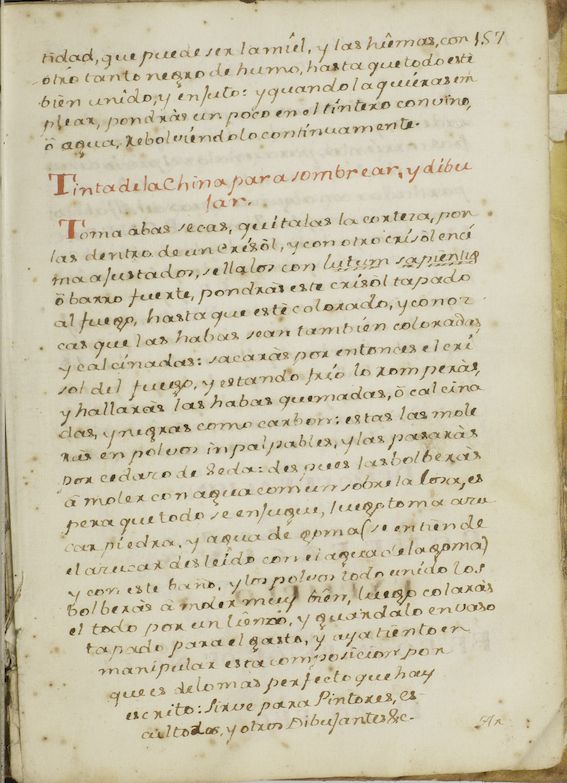 157
tidad, que puede ser la miel, y las hiêmas, con
otro tanto negro de humo, hasta que todo estè
bien unido, y enjuto: y quando la quieras em
plear, pondràs un poco en el tintero con vino,
ò agua, Rebolviendolo continuamente.
Tinta de la China para sombrear, y dibu
jar.
Toma abas secas, quitalas la corteza, pon
las dentro de un Crisòl, y con otro crisòl enci
ma ajustados, sellalos con lutum sapientie
ò barro fuerte, pondràs este crisòl tapado
al fuego, hasta que estè colorado, y conoz
cas que las habas sean tambien coloradas
y calcinadas: sacaràs por entonces el cri
sol del fuego, y estando frio lo romperàs,
y hallaràs las habas quemadas, ò calcina
das, y negras como carbon: estas las mole
ràs en polvos inpalpables, y las pasaràs
por cedazo de Seda: des pues las bolberàs
à moler con agua comun sobre la losa, es
pera que todo se enjugue, luego toma azu
car piedra, y agua de goma (se entiende
el azucar desleido con el agua de la goma)
y con este baño, y los polvos todo unido los
bolberàs à moler muy bien, luego colaràs
el todo por un lienzo, y guardalo en vaso
tapado para el gasto, y aya tiento en
manipular esta composicion por
que es de lo mas perfecto que hay
escrito: Sirve para Pintores, es
cultores, y otros Dibujantes &c.